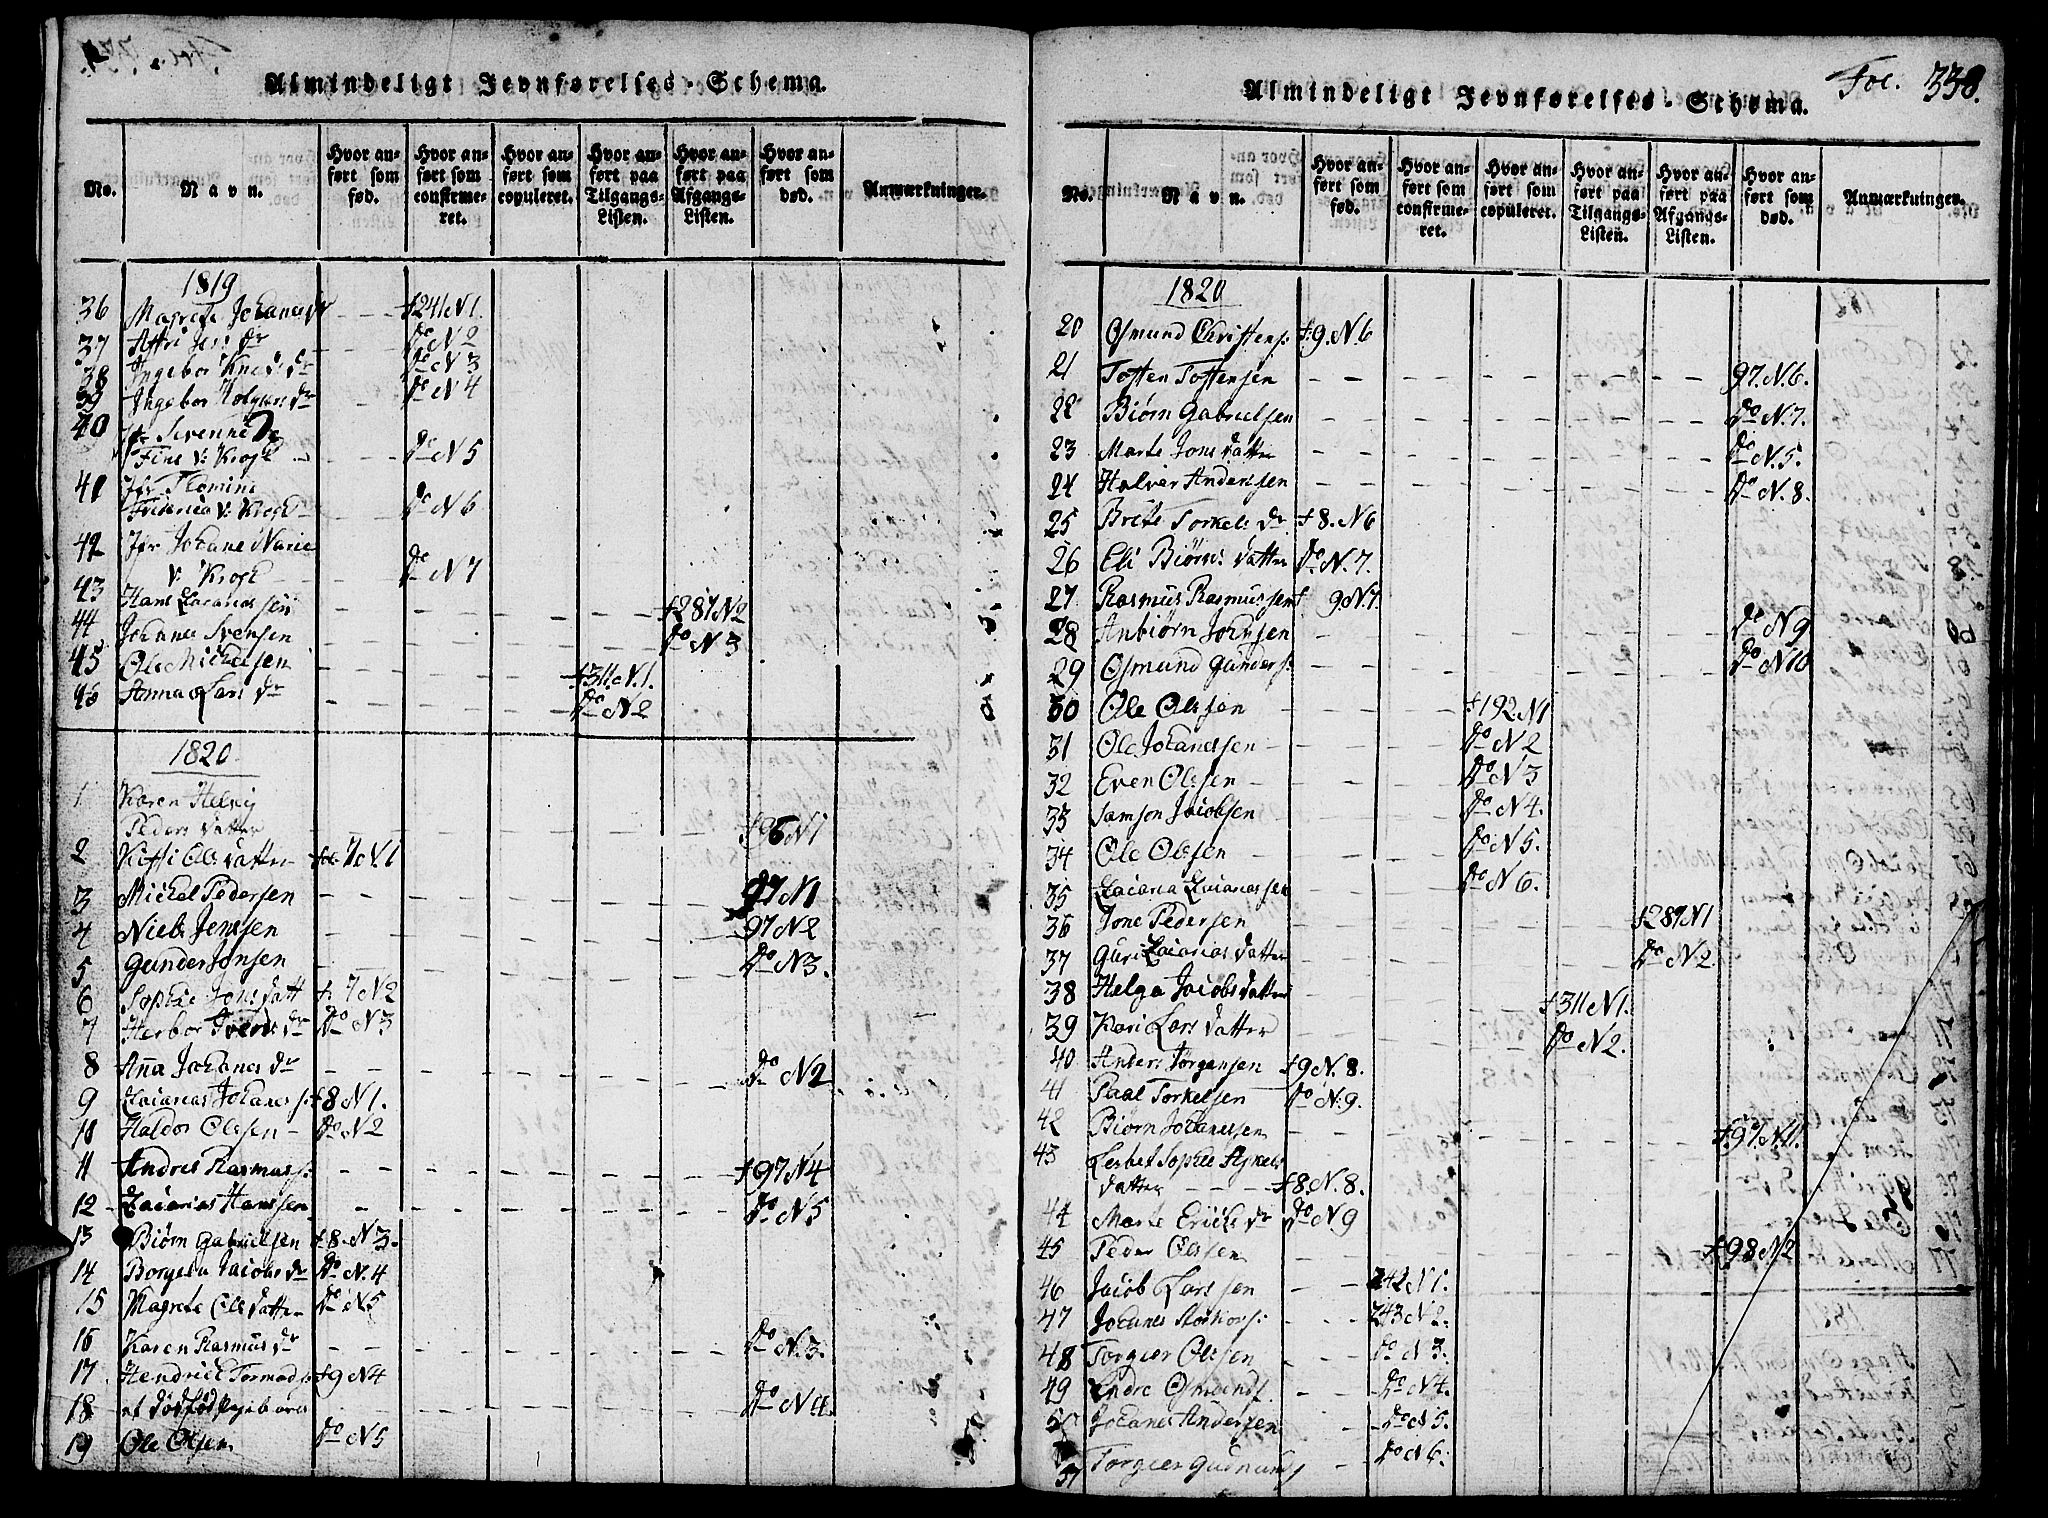 Almindeligt Jevnførelses-Schema.
No.
Navn.
Hvor anført som fød.
Hvor anført som confirmeret.
Hvor anført som copuleret.
Hvor anført paa Tilgangs-Listen.
Hvor anført paa Afgangs-Listen.
Hvor anført som død.
Anmærkninger.
1819
36 Magrete Johanesdr †241 N1.
37 Jens dr do N2
38 Ingebor Knuds dr do N3
39 Ingebor Holgers dr do N4
40 Jfr
Fine v: Krogh do N5
41 Jfr
v: Krogh do N6
42 Jfr Johane Marie
v: Krogh do N7
43 Hans Zacariassen †287 N2
44 Johanes Svensen do N3
45 Ole Mickelsen †311 N.1.
46 Anna Lars dr do N2
1820
1 Karen Helvig
Peders datter †96 N1
2 Ols datter fol 7 N1
3 Mickel Pedersen 97 N1
4 Niels Jenssen 97 N2
5 Gunder Jonsen do N3.
6 Sophie Jons datt †7 N2
7 Herbor dr do N3
8 Anna Johanes dr do N2
9 Zacarias Johanes s: †8 N1.
10 Haldor Olssen do N2
11 Andres Rasmuss: †97 N4
12 Zacarias Hanssen do N5
13 Biørn Gabrielsen †8. N3.
14 Jacobs dr do N.4
15 Magrete Ols datter do N5
16 Karen Rasmus dr do N.3.
17 Hendrick Tormods †9 N4
18 et dødfød Pigebarn do N4.
19 Ole Olsen do N5
Almindeligt Jevnførelses-Schema.
Fol. 338.
No.
Navn.
Hvor anført som fød.
Hvor anført som confirmeret.
Hvor anført som copuleret.
Hvor anført paa Tilgangs-Listen.
Hvor anført paa Afgangs-Listen.
Hvor anført som død.
Anmærkninger.
1820
20 Osmund Christens: †9. N6
21 Tosten Tostensen 97. N6.
22 Biørn Gabrielsen do N.7.
23 Marte Jons datter do N.5.
24 Halvor Anderssen do N.8.
25 Brete Torkels dr †8. N6
26 Eli Biørns datter do N.7.
27 Rasmus Rasmussen † 9 N7.
28 Anbiørn Johnsen do N9
29 Osmund Gunders: do N10
30 Ole Olssen †192 N1
31 Ole Johanessen do N2
32 Even Olssen do N3
33 Samson Jacobsen do N4.
34 Ole Olssen do N5.
35 Zacaria Zacariassen do N6.
36 Jone Pedersen †287 N1
37 Guri Zacarias datter do N2.
38 Helga Jacobs datter †311 N1.
39 Kari Lars datter do N2.
40 Anders Jørgensen †9 N.8.
41 Paal Torkelsen do N.9.
42 Biørn Johanessen †97 N.11.
43 Lisbet Sophie
datter †8. N.8.
44 Marte Ericks dr do N9
45 Peder Olssen †98 N2
46 Jacob Larssen 242 N1.
47 Johanes 243 N2.
48 Torgier Olssen do N3.
49 Endre Osmunds do N4.
50 Johanes Andersen do N5.
51 Torgier Gudmunds do N6.